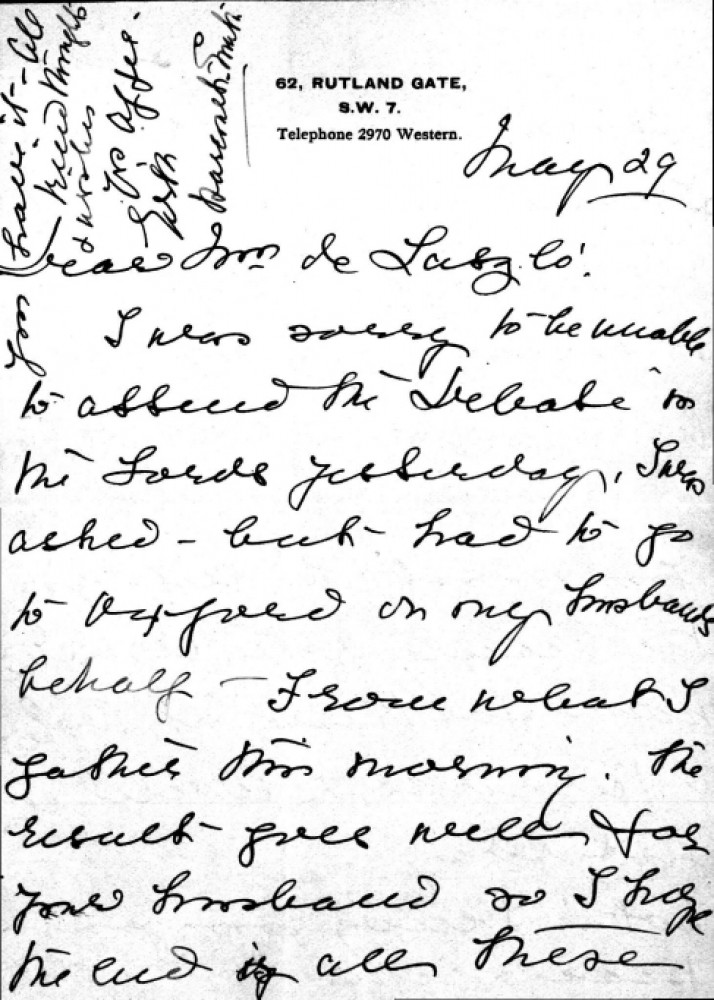 62, RUTLAND GATE,
S.W. 7.
Telephone 2970 Western.
May 29
Dear Mrs de László.
I was sorry to be unable
to attend the Debate in
the Lords yesterday, I was
asked - but had to go
to Oxford on my husbands
behalf - From what I
gather this morning. The
result goes well for
your husband so I hope
the end is all these
you have it - All
kind thoughts
& wishes
Yrs affec: